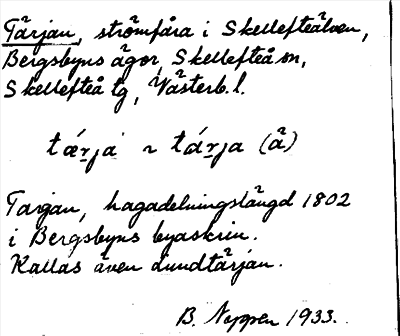 Tärjan, strömfåra i Skellefteälven,
Bergsbyns ägor, Skellefteå sn,
Skellefteå tg, Västerb. l.
tǽrja ~ tárja (ä)
Tarjan, hagadelningslängd 1802
i Bergsbyns byaskrin.
Kallas även sundtärjan.
B. Noppen 1933.